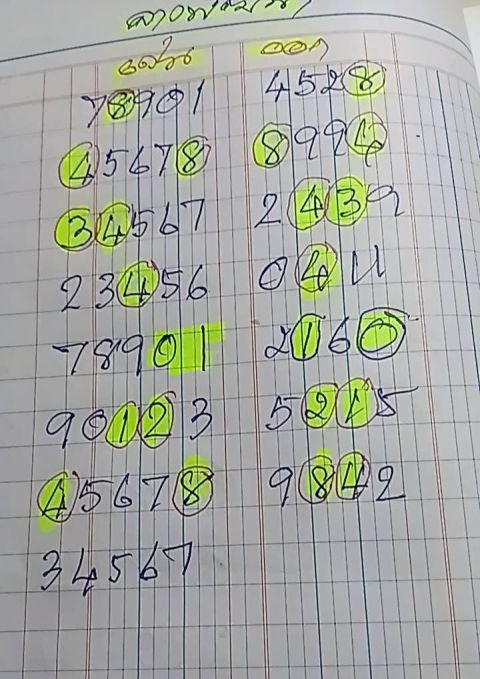 ออก
78901 4528
45678 8994
34567 2439
23456 0411
78901 2160
90123 5215
45678 9842
34567